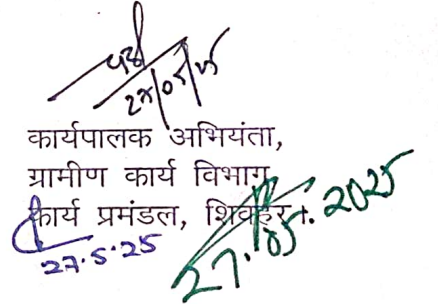 27/05/25
कार्यपालक अभियंता,
ग्रामीण कार्य विभाग
कार्य प्रमंडल, शिवहर।
27.5.25
27.05.2025